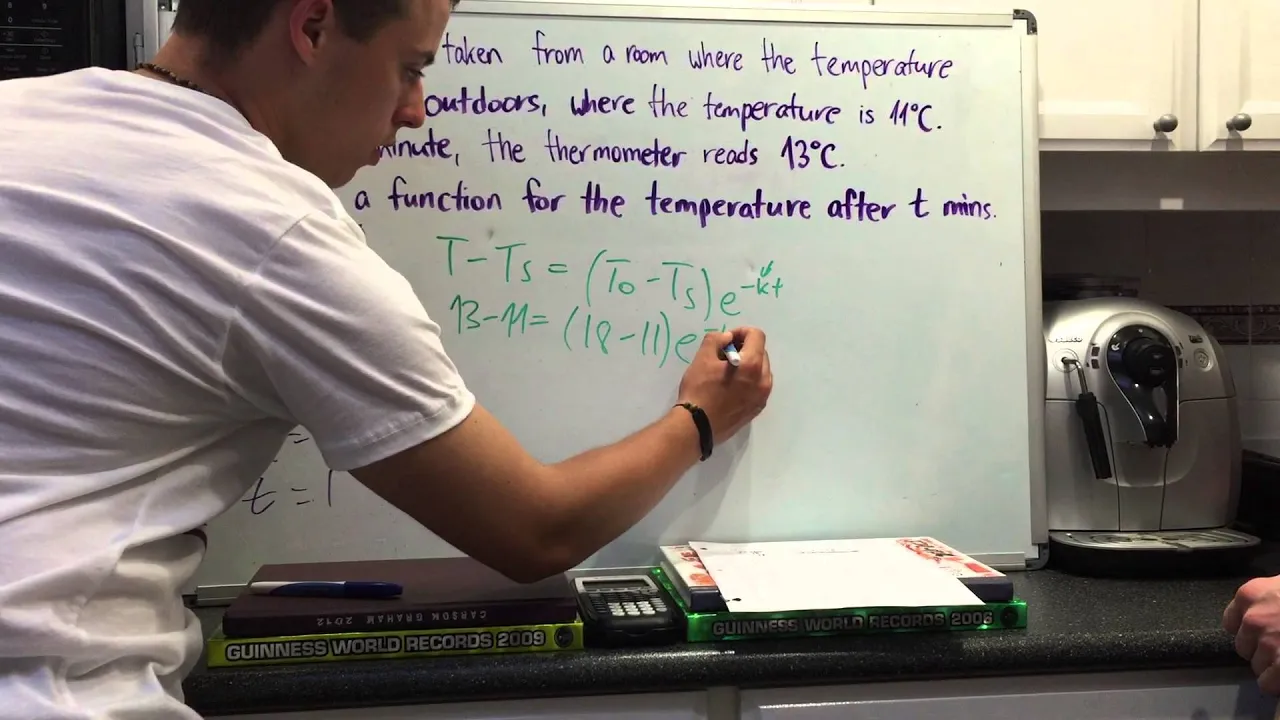 taken from a room where the temperature
outdoors, where the temperature is 11°C.
the thermometer reads 13°C.
a function for the temperature after t mins.
T-Ts = (To-Ts)e^-kt
13-11= (18-11)e
t = 1
CARSON GRAHAM 2012
GUINNESS WORLD RECORDS 2009
GUINNESS WORLD RECORDS 2006